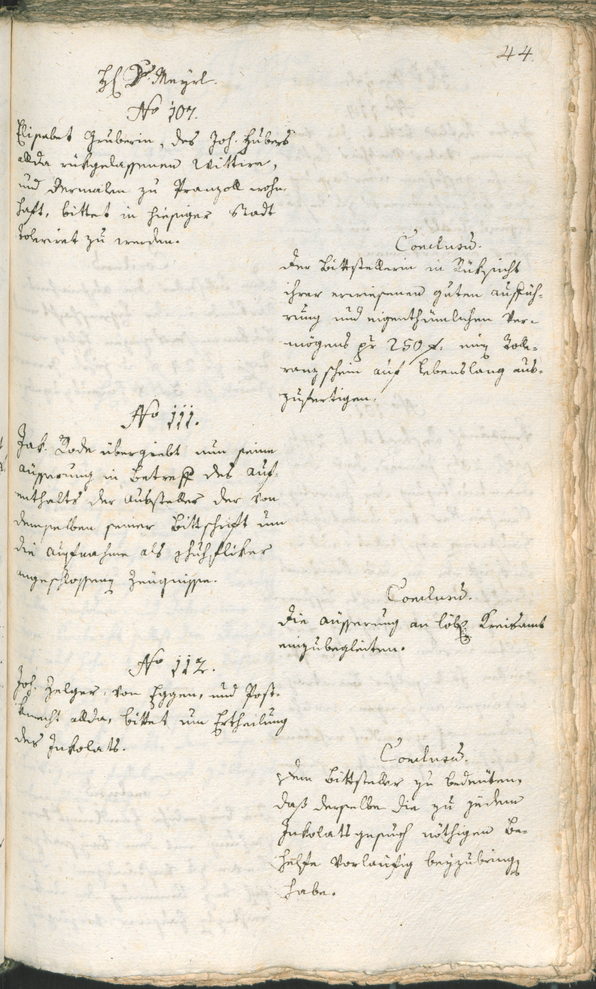 44.
H. Dr. Mayrl.
No 107.
Elisabet Gruberin, des Joh. Hubers
allda rükgelassenen Wittwe,
und dermalen zu Pranzoll wohn
haft, bittet in hiesiger Stadt
tolerirt zu werden.
Conclusu.
Der Bittstellerin in Rüksicht
ihrer erwiesenen guten Auffüh-
rung und eigenthümlichen Ver-
mögens pr 250 f. ein Tole-
ranzschein auf Lebenslang aus-
zufertigen.
No 111.
Jak. Rode übergiebt nun seine
äusserung in Betreff des Auf-
enthalts der Aussteller der von
demselben seiner Bittschrift um
die Aufnahme als Schuhfliker
angeschlossenen Zeugnisse.
Conclusu.
Die äusserung an löbl. Kreisamt
einzubegleiten.
No 112.
Joh. Zelger, von Eggen, und Post-
knecht allda, bittet um Ertheilung
des Inkolats.
Conclusu.
Dem Bittsteller zu bedeuten,
daß derselbe die zu jedem
Inkolatsgesuch nöthigen Be-
helfe vorläufig beyzubringen
habe.